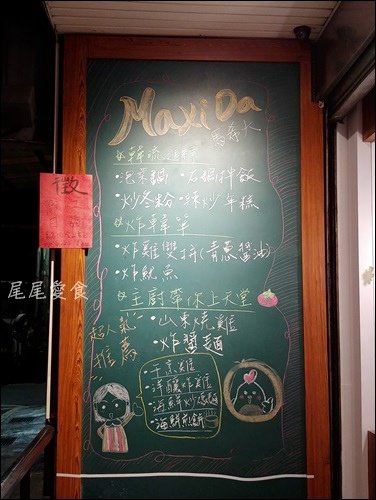 Maxi Da
馬蒔大
韓流
·泡菜鍋 ·石鍋拌飯
·炒冬粉 ·辣炒年糕
炸韓單
·炸雞雙拼(青蔥醬油)
·炸魷魚
主廚帶你上天堂
·山東燒雞
·炸醬麵
超人氣
推薦
·干烹雞
·洋釀炸雞
·海鮮炒碼麵
·海鮮煎餅
徵
尾尾愛食